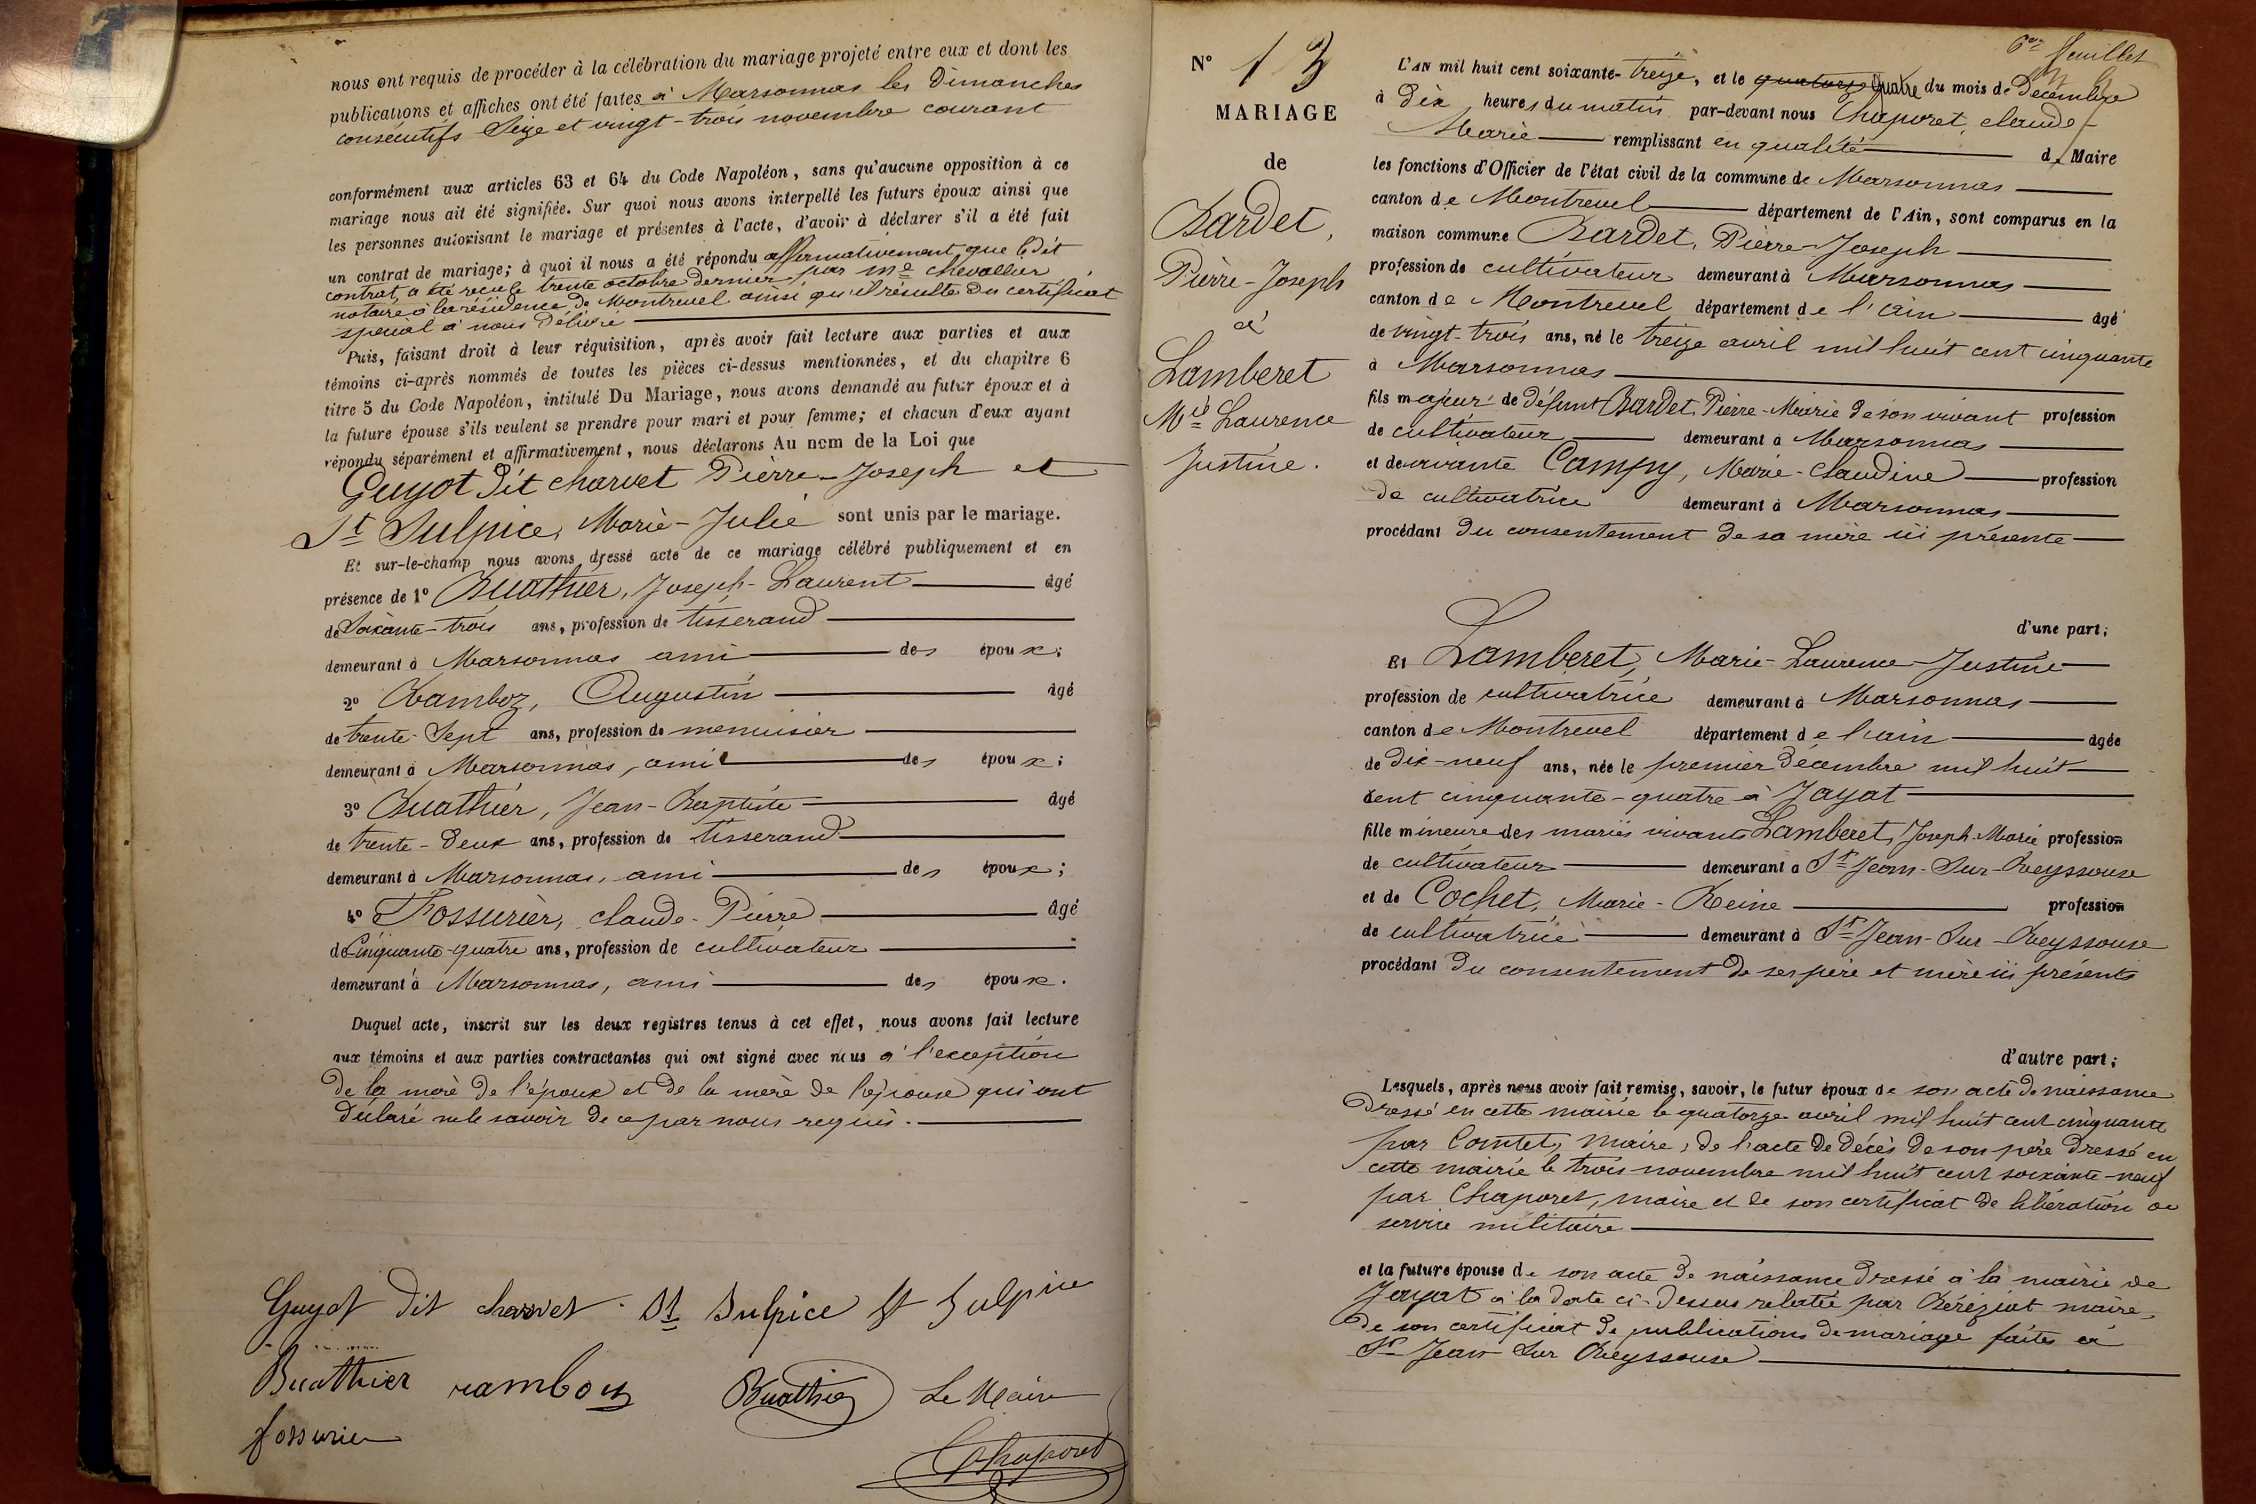 nous ont requis de procéder à la célébration du mariage projeté entre eux et dont les
publications et affiches ont été faites à Marsonnas les dimanches
consécutifs Seize et vingt-trois novembre courant
conformément aux articles 63 et 64 du Code Napoléon, sans qu'aucune opposition à ce
mariage nous ait été signifiée. Sur quoi nous avons interpellé les futurs époux ainsi que
les personnes autorisant le mariage et présentes à l'acte, d'avoir à déclarer s'il a été fait
un contrat de mariage; à quoi il nous a été répondu affirmativement que ledit
contrat a été reçu le trente octobre dernier par Me Chevallier
notaire à la résidence de Montrevel ainsi qu'il résulte du certificat
spécial à nous délivré
Puis, faisant droit à leur réquisition, après avoir fait lecture aux parties et aux
témoins ci-après nommés de toutes les pièces ci-dessus mentionnées, et du chapitre 6
titre 5 du Code Napoléon, intitulé Du Mariage, nous avons demandé au futur époux et à
la future épouse s'ils veulent se prendre pour mari et pour femme; et chacun d'eux ayant
répondu séparément et affirmativement, nous déclarons Au nom de la Loi que
Guyot dit charvet Pierre-Joseph et
St Sulpice, Marie-Julie sont unis par le mariage.
Et sur-le-champ nous avons dressé acte de ce mariage célébré publiquement et en
présence de 1° Buathier, Joseph-Laurent âgé
de Soixante-trois ans, profession de tisserand
demeurant à Marsonnas ami des époux;
2° Ramboz, Augustin âgé
de trente-Sept ans, profession de menuisier
demeurant à Marsonnas, ami des époux;
3° Buathier, Jean-Baptiste âgé
de trente-deux ans, profession de tisserand
demeurant à Marsonnas, ami des époux;
4° Fossurier, claude-Pierre âgé
de Cinquante-quatre ans, profession de cultivateur
demeurant à Marsonnas, ami des époux.
Duquel acte, inscrit sur les deux registres tenus à cet effet, nous avons fait lecture
aux témoins et aux parties contractantes qui ont signé avec nous à l'exception
de la mère de l'époux et de la mère de l'épouse qui ont
déclaré ne le savoir de ce par nous requis.
Guyot dit charvet St Sulpice St Sulpice
Buathier ramboz Buathier Le Maire
fossurier Chaporet
6me feuillet
N° 13
MARIAGE
de
Bardet,
Pierre-Joseph
à
Lamberet
Mie Laurence
Justine.
L'AN mil huit cent soixante-treize, et le quatorze quatre du mois de décembre
à dix heures du matin par-devant nous Chaporet, claude-
Marie remplissant en qualité de Maire
les fonctions d'Officier de l'état civil de la commune de Marsonnas
canton de Montrevel département de l'Ain, sont comparus en la
maison commune Bardet, Pierre-Joseph
profession de cultivateur demeurant à Marsonnas
canton de Montrevel département de l'ain âgé
de vingt-trois ans, né le treize avril mil huit cent cinquante
à Marsonnas
fils majeur de défunt Bardet, Pierre-Marie de son vivant profession
de cultivateur demeurant à Marsonnas
et de vivante Campy, Marie-Claudine profession
de cultivatrice demeurant à Marsonnas
procédant du consentement de sa mère ici présente
d'une part;
Et Lamberet, Marie-Laurence-Justine
profession de cultivatrice demeurant à Marsonnas
canton de Montrevel département de l'ain âgée
de dix-neuf ans, née le premier décembre mil huit
cent cinquante-quatre à Jayat
fille mineure des mariés vivants Lamberet, Joseph-Marie profession
de cultivateur demeurant à St Jean-Sur-Reyssouse
et de Cochet, Marie-Reine profession
de cultivatrice demeurant à St Jean-Sur-Reyssouse
procédant du consentement de ses père et mère ici présents
d'autre part;
Lesquels, après nous avoir fait remise, savoir, le futur époux de son acte de naissance
dressé en cette mairie le quatorze avril mil huit cent cinquante
par Comtet, maire, de l'acte de décès de son père dressé en
cette mairie le trois novembre mil huit cent soixante-neuf
par Chaporet, maire et de son certificat de libération de
service militaire
et la future épouse de son acte de naissance dressé à la mairie de
Jayat à la date ci-dessus relatée par Béréziat maire,
de son certificat de publications de mariage faites à
St Jean Sur Reyssouse